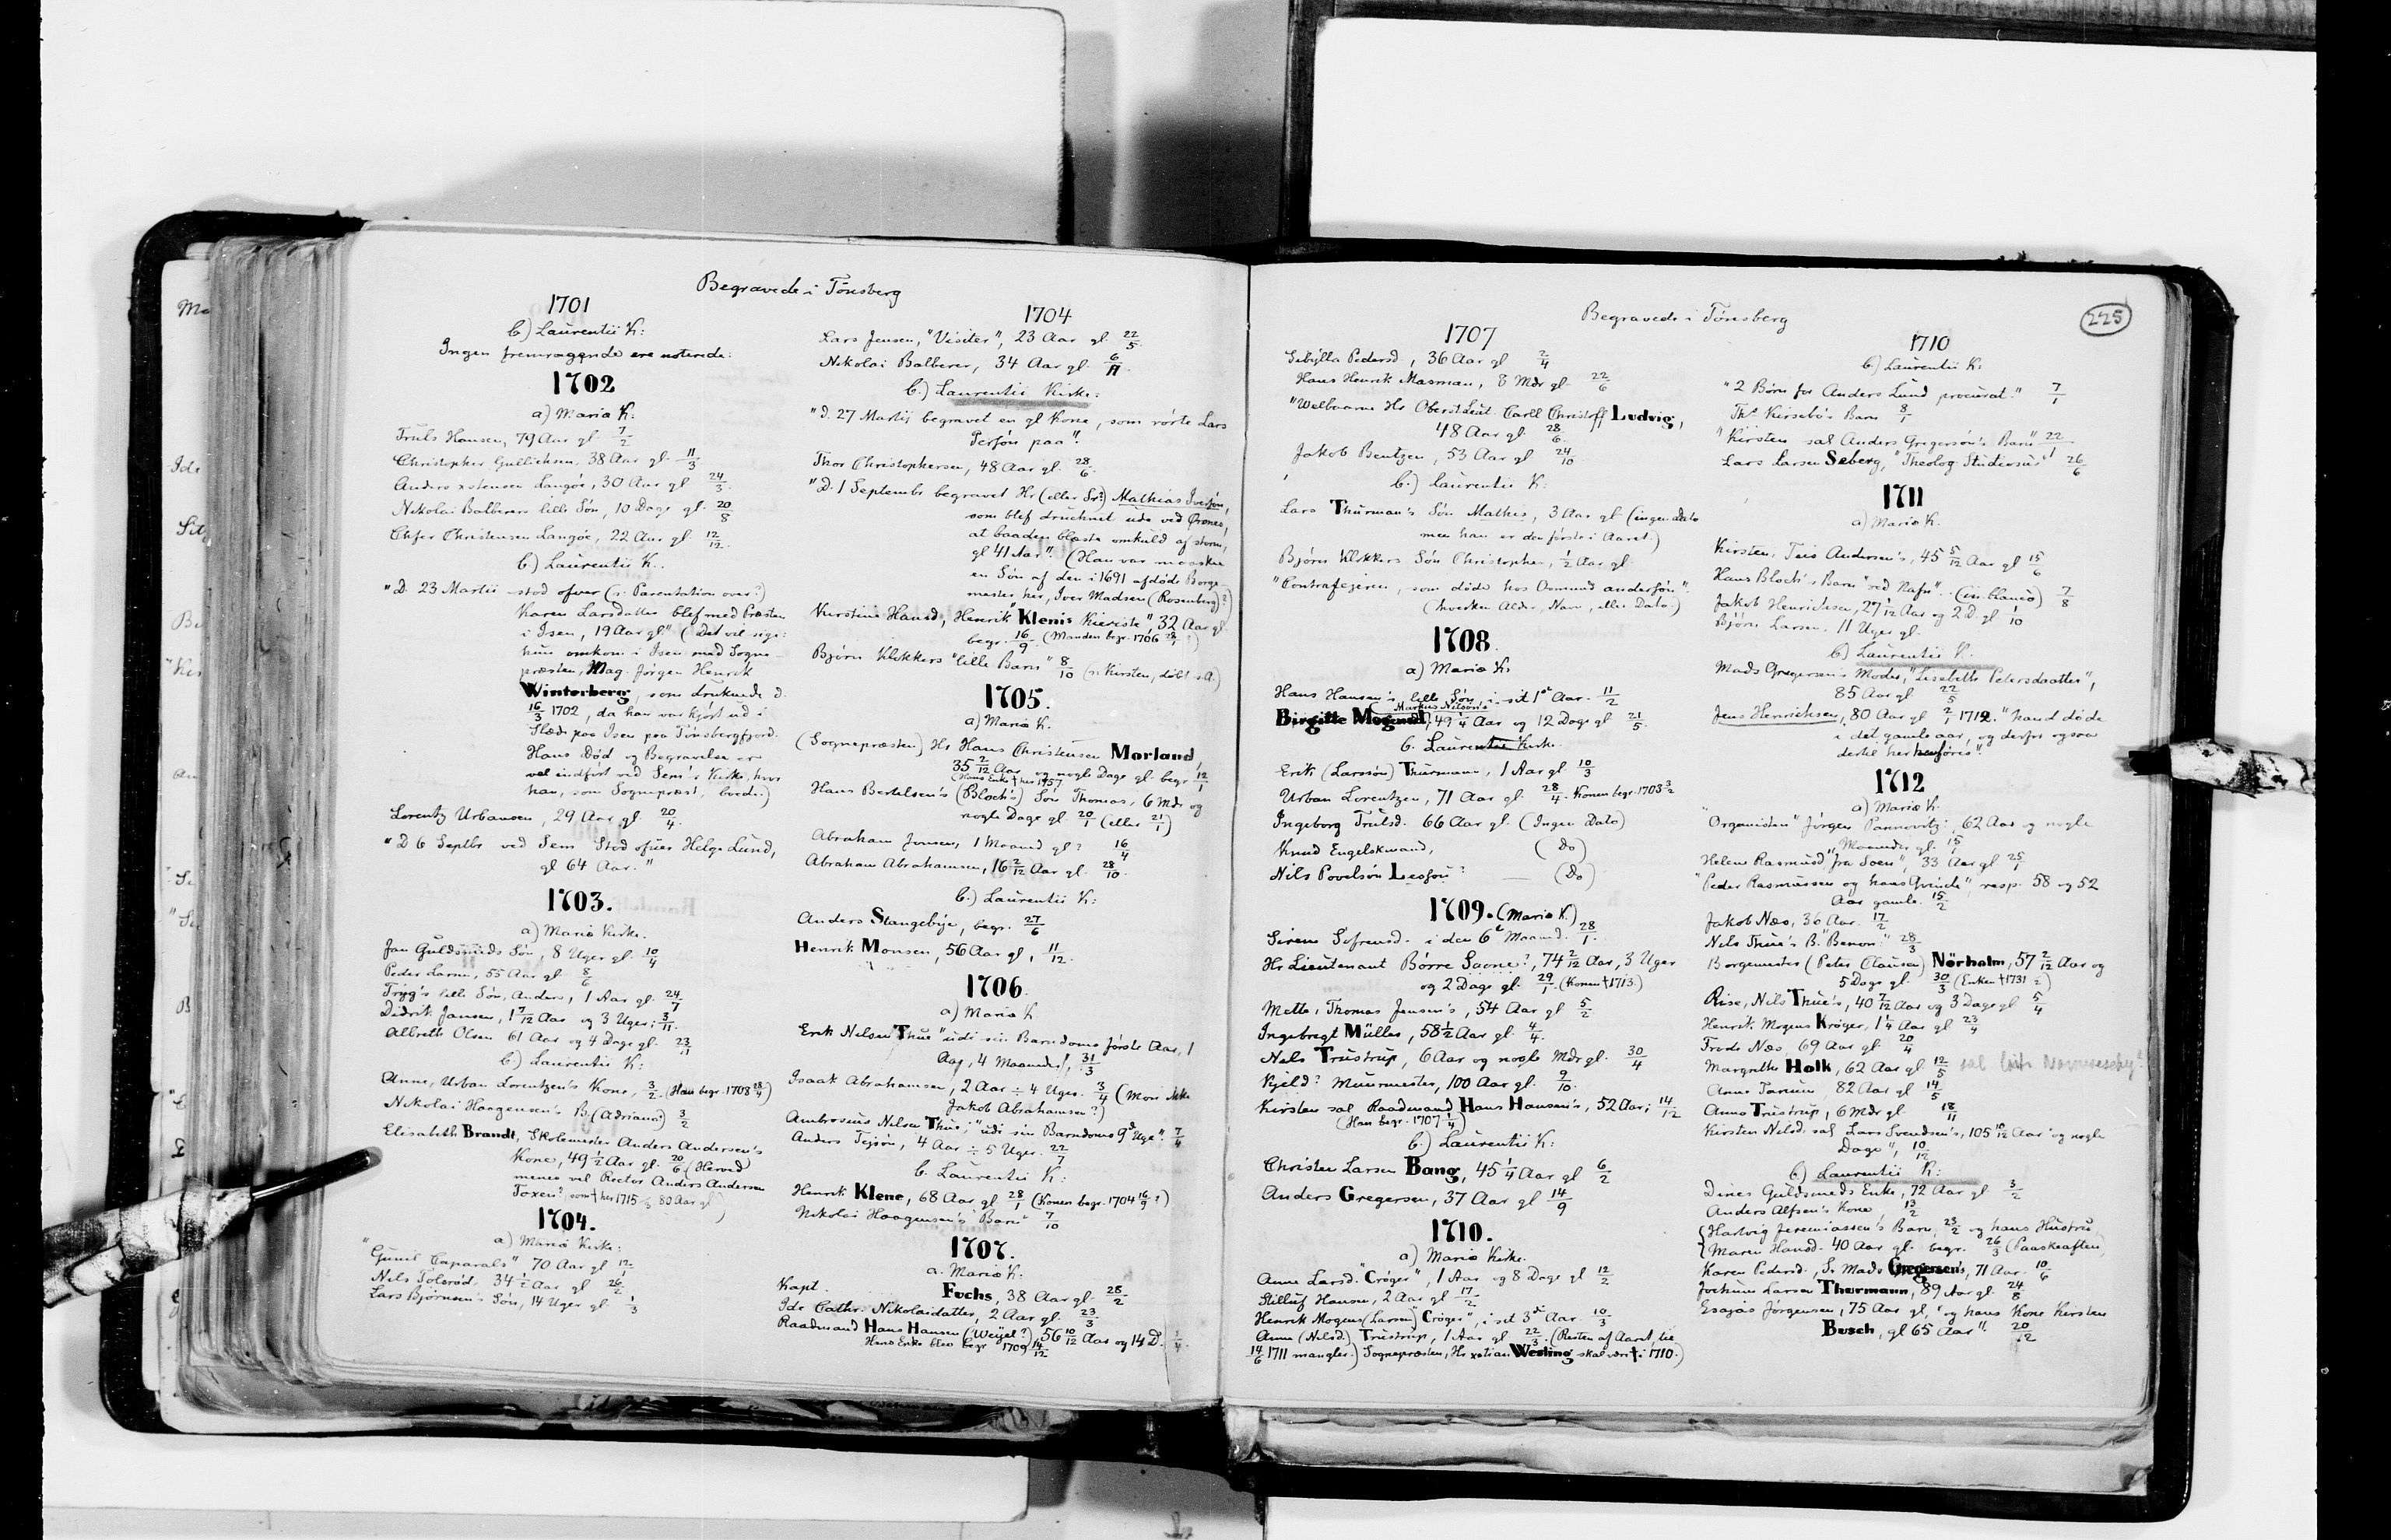 Begravede i Tönsberg
1701
b.) Laurentii K:
Ingen fremragende ere noterede:
1702
a) Maria K:
Truls Hansen, 79 Aar gl 7/2
Christopher Gullichsen, 38 Aar gl. 11/3
Anders xstensen Langöe, 30 Aar gl 24/3.
Nikolai Balberers lille Sön, 10 Dage gl. 20/8
Chfer Christensen Langöe, 22 Aar gl. 12/12.
b.) Laurentii K..
"D. 23 Martii stod ofver (ɔ: Parentation over?)
Karen Larsdatter blef med Præsten
i Isen, 19 Aar gl." (Det vil sige:
hun omkom i Isen med Sogne-
præsten, Mag. Jörgen Henrik
Winterberg, som druknede d.
16/3 1702, da han var kjört ud i
Slæde paa Isen paa Tönsbergfjord.
Hans Död og Begravelse er
vel indfört ved Sem's Kirke, hvor
han, som Sognepræst, boede.)
Lorentz Urbansen, 29 Aar gl. 20/4.
"D 6 Septbr ved Sem Stod ofver Helge Lund,
gl 64 Aar."
1703.
a) Maria Kirke.
Jan Guldsmeds Sön, 8 Uger gl. 10/4
Peder Larsen, 55 Aar gl. 8/6
Trÿg's lille Sön, Anders, 1 Aar gl. 24/7
Didrik Jansen, 1 7/12 Aar og 3 Uger; 3/11.
Albreth Olsen 61 Aar og 4 Dage gl. 23/11
b.) Laurentii K:
Anne, Urban Lorentzen's Kone, 3/2. (Han begr. 1708 28/4)
Nikolai Haagensen's B. (Adriana) 3/2
Elisabeth Brandt, Skolemester Anders Andersen's
Kone, 49 1/2 Aar gl. 20/6 (Herved
menes vel Rector Anders Andersen
Toxen? som † her 1715 80 Aar gl)
1704.
a) Maria Kirke:
"Gunil Caparals" 70 Aar gl 12/1
Nils Tolsröd, 34 1/2 Aar gl 26/2
Lars Björnsen's Sön, 14 Uger gl. 1/3
1704
Lars Jensen, "Visiter", 23 Aar gl. 22/5.
Nikolai Balberer, 34 Aar gl. 6/11.
b.) Laurentii Kirke:
"D. 27 Martij begravet en gl Kone, som rörte Lars
Persön paa".
Thor Christophersen, 48 Aar gl. 28/6.
"D. 1 Septembr begravet Hr (eller Sr?) Mathias Iversön,
som blef druchnet ude ved Örsnes,
at baaden blæste omkuld af storm,
gl 41 Aar". (Han var maaskee
en Sön af den i 1691 afdöde Borge-
mester her, Iver Madsen (Rosenberg)?
Kirstine Hansd, Henrik "Klenis Kieriste", 32 Aar gl.
begr. 16/9 (Manden begr. 1706 28/1 ?)
Björn Klokkers "lille Barn" 8/10 (ɔ: Kirsten, döbt s.A.)
1705.
a) Maria K.
(Sognepræsten) Hr Hans Christensen Morland,
35 2/12 Aar og nogle Dage gl. begr 12/1
(Hans Enke † her 1757
Hans Bertelsen's (Bloch's) Sön Thomas, 6 Mdr og
nogle Dage gl 20/1 (eller 21/1)
Abraham Jensen, 1 Maaned gl? 16/4
Abraham Abrahamsen, 16 2/12 Aar gl. 28/10.
b.) Laurentii K:
Anders Stangebÿe, begr. 27/6
Henrik Monsen, 56 Aar gl, 11/12.
1706
a) Maria K.
Erik Nilsen Thue "udi sin Barndoms förste Aar, 1
Aar, 4 Maaneder", 31/3
Isaak Abrahamsen, 2 Aar ÷ 4 Uger. 3/4 (Mon ikke
Jakob Abrahamsen?)
Ambrosius Nilsen Thue, "udi sin Barndoms 9de Uge". 7/4
Anders Tejsön, 4 Aar ÷ 5 Uger. 22/7
b. Laurentii K:
Henrik Klene, 68 Aar gl 28/1 (Konen begr. 1704 16/9 ?)
Nikolai Haagensen's "Barn" 7/10
1707.
a. Maria K:
Kapt. Fuchs, 38 Aar gl. 28/2
Ide Cathr. Nikolaidatter, 2 Aar gl. 23/3
Raadmand Hans Hansen (Weÿel?) 56 10/12 Aar og 14 D. 1/4.
Hans Enke blev begr 1709 14/12
Begravede i Tönsberg
225
1707
Sebÿlla Pedersd., 36 Aar gl 2/4
Hans Henrik Masman, 8 Mdr gl. 22/6
"Welbaarne Hr Oberst Leut. Carll Christoff Ludvig,
48 Aar gl. 28/6.
Jakob Bentzen, 53 Aar gl 24/10
b.) Laurentii K:
Lars Thurman's Sön Mathis, 3 Aar gl (ingen dato
men han er den förste i Aaret.)
Björn Klokkers Sön Christopher, 1/2 Aar gl.
"Contrafejeren, som döde hos Osmund andersön".
(hverken Alder, Navn, eller Dato.)
1708.
a) Maria K.
Hans Hansen's lille Sön, i sit 1st Aar. 11/2
Markus Nilsön's
Birgitte Mogensd, 49 1/4 Aar og 12 Dage gl 21/5.
b. Laurentii Kirke.
Erik (Larssön) Thurmann, 1 Aar gl 10/3
Urban Lorentzen, 71 Aar gl. 28/4. Konen begr. 1703 3/2
Ingeborg Trulsd. 66 Aar gl. (Ingen Dato)
Knud Engelskmand, (Do)
Nils Povelsön Lessou? — (Do)
1709. (Maria K.)
Sirene Sofrensd. i den 6te Maaned. 28/1.
Hr Lieutenant Börre Saene?, 74 2/12 Aar, 3 Uger
og 2 Dage gl. 29/1. (Konen † 1713.)
Mette, Thomas Jensen's, 54 Aar gl 5/2
Ingebregt Müller, 58 1/2 Aar gl. 4/4.
Niels Trustrup, 6 Aar og nogle Mdr gl. 30/4
Kjeld? Muurmester, 100 Aar gl. 9/10.
Kirsten sal Raadmand Hans Hansen's, 52 Aar; 14/12
(Han begr. 1707 1/4)
b.) Laurentii K:
Christen Larsen Bang, 45 1/4 Aar gl 6/2
Anders Gregersen, 37 Aar gl 14/9
1710.
a) Maria Kirke.
Anne Larsd. "Cröger", 1 Aar og 8 Dage gl 12/2
Stilluf Hansen, 2 Aar gl 17/2
Henrik Mogens (Larsen) "Cröger", i sit 3de Aar. 10/3
Anne (Nilsd) Trustrup, 1 Aar gl 22/3. (Resten af Aaret, til
14/6 1711 mangler.) Sognepræsten, Hr xstian Wesling skal være † i 1710.)
1710
b.) Laurentii K:
"2 Börn for Anders Lund procurat." 7/1
Ths Kirsebö's Barn 8/1
"Kirsten sal Anders Gregersön's Barn" 22/1
Lars Larsen Seberg, "Theolog: Studiosus" 26/6
1711
a) Maria K.
Kirsten, Teis Andersen's, 45 5/12 Aar gl 15/6
Hans Bloch's Barn "ved Nafn".. (in blanco) 7/8
Jakob Henrichsen, 27 1/12 Aar og 2 D. gl 1/10
Björn Larsen, 11 Uger gl.
b) Laurentii K.
Mads Gregersen's Moder, "Lisabeth Petersdaatter",
85 Aar gl 22/5
Jens Henrichsen, 80 Aar gl 2/1 1712. "hand döde
i det gamle aar, og derfor ogsaa
dertil her henföres".
1712
a) Maria K.
"Organisten" Jörgen Pannovitz, 62 Aar og nogle
Maaneder gl. 15/1
Helene Rasmusd "fra Soen", 33 Aar gl 25/1
"Peder Rasmussen og hans Qvinde", resp. 58 og 52
Aar gamle. 15/2
Jakob Næs, 36 Aar. 17/2
Nils Thue's B. "Benon" 28/3
Borgemester (Peter Clausen) Nörholm, 57 2/12 Aar og
5 Dage gl. 30/3 (Enken † 1731 ?)
Rise, Nils Thue's, 40 7/12 Aar og 3 Dage gl 5/4
Henrik Mogens Kröger, 1 1/4 Aar gl 23/4
Trods Næs, 69 Aar gl. 20/4
Margrethe Holk, 62 Aar gl 12/5 sal
Anne Tarium 82 Aar gl 14/5
Anne Trustrup, 6 Mdr gl. 18/11
Kirsten Nilsd, sal Lars Svendsen's, 105 10/12 Aar "og nogle
Dage", 10/12
b) Laurentii K:
Dines Guldsmeds Enke, 72 Aar gl. 3/2
Anders Alfsen's Kone 13/2
Hartvig Jeremiassen's Barn, 23/2 og hans Hustru
Maren Hansd. 40 Aar gl. begr. 26/3 (Paaskeaften)
Karen Pedersd., Sr Mads Gregersen's, 71 Aar. 10/6
Jochum Larsen Thurmann, 89 Aar gl. 24/8
Esajas Jörgensen, 75 Aar gl, "og hans Kone Kirsten
Busch, gl 65 Aar". 20/12